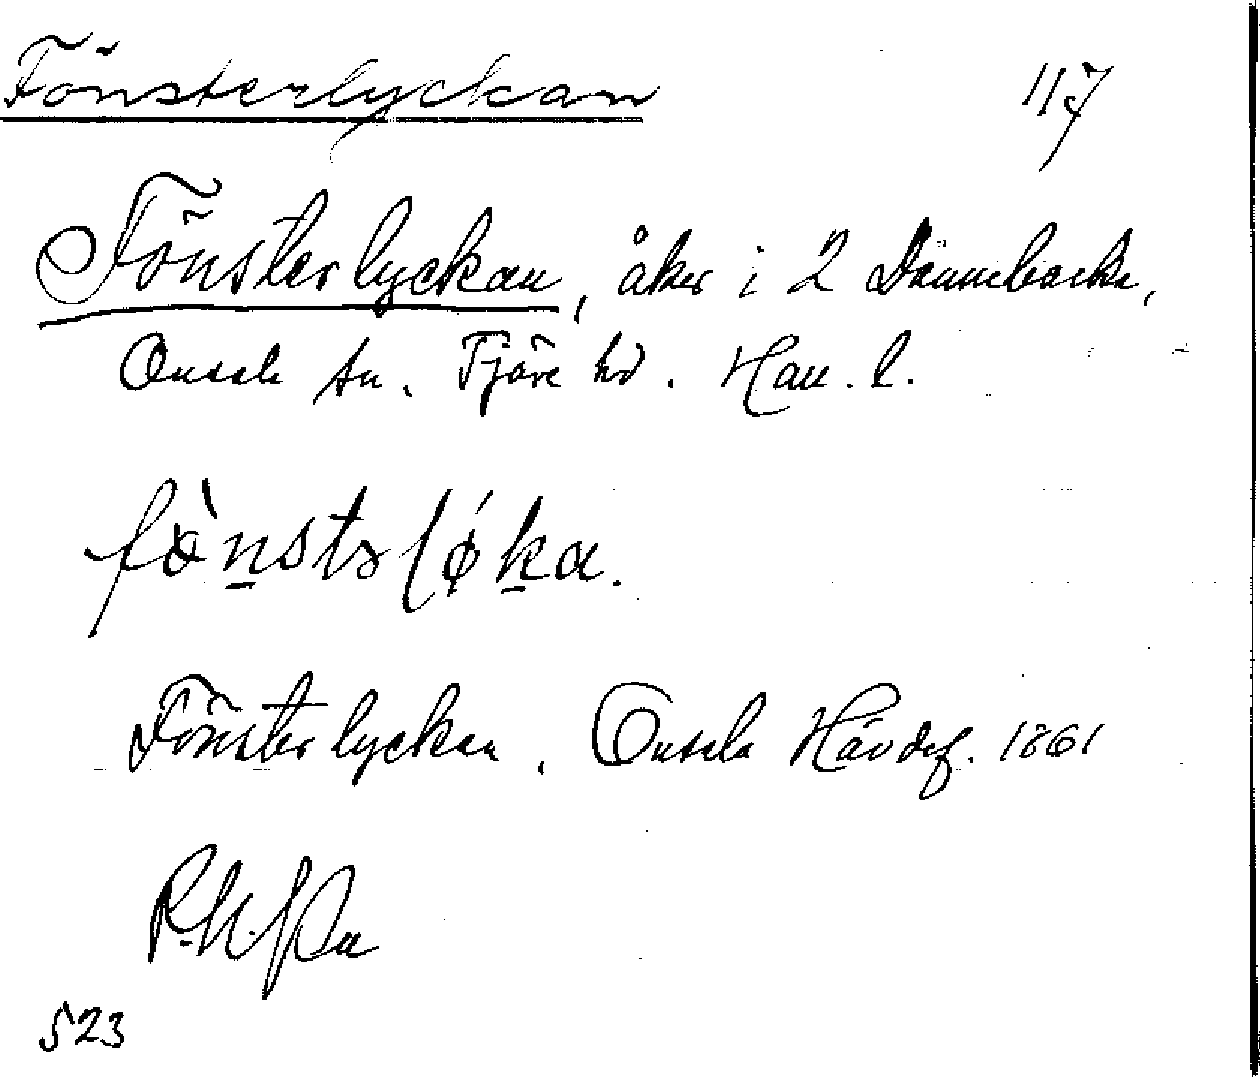 Fönsterlyckan 117
Fönsterlyckan, åker i 2 Dannebacka,
Onsala sn. Fjäre hd. Hall. l.
Fönsterlyckan, Onsala Hävdef. 1861
523